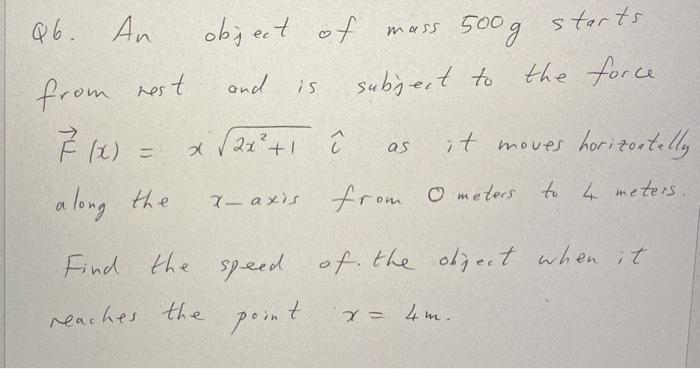 Q6. An object of mass 500g starts
from rest and is subject to the force
F⃗ (x) = x √(2x²+1) î as it moves horizontally
along the x-axis from 0 meters to 4 meters.
Find the speed of the object when it
reaches the point x = 4m.